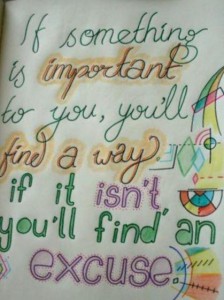 If something
is important
to you, you'll
find a way
if it isn't,
you'll find an
excuse.